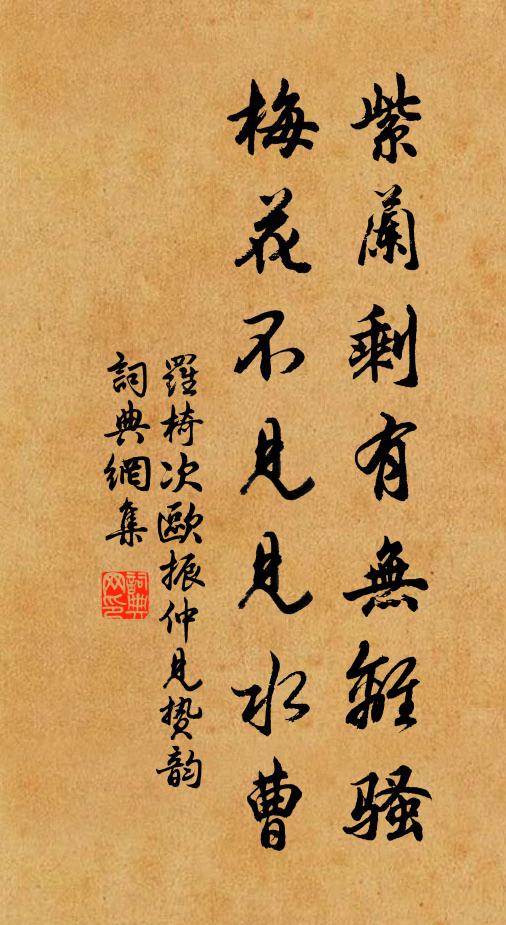 紫蘭剩有無離騷
梅花不見見水曹
羅椅次歐振仲見贄韵
詞典網集
詞典網印